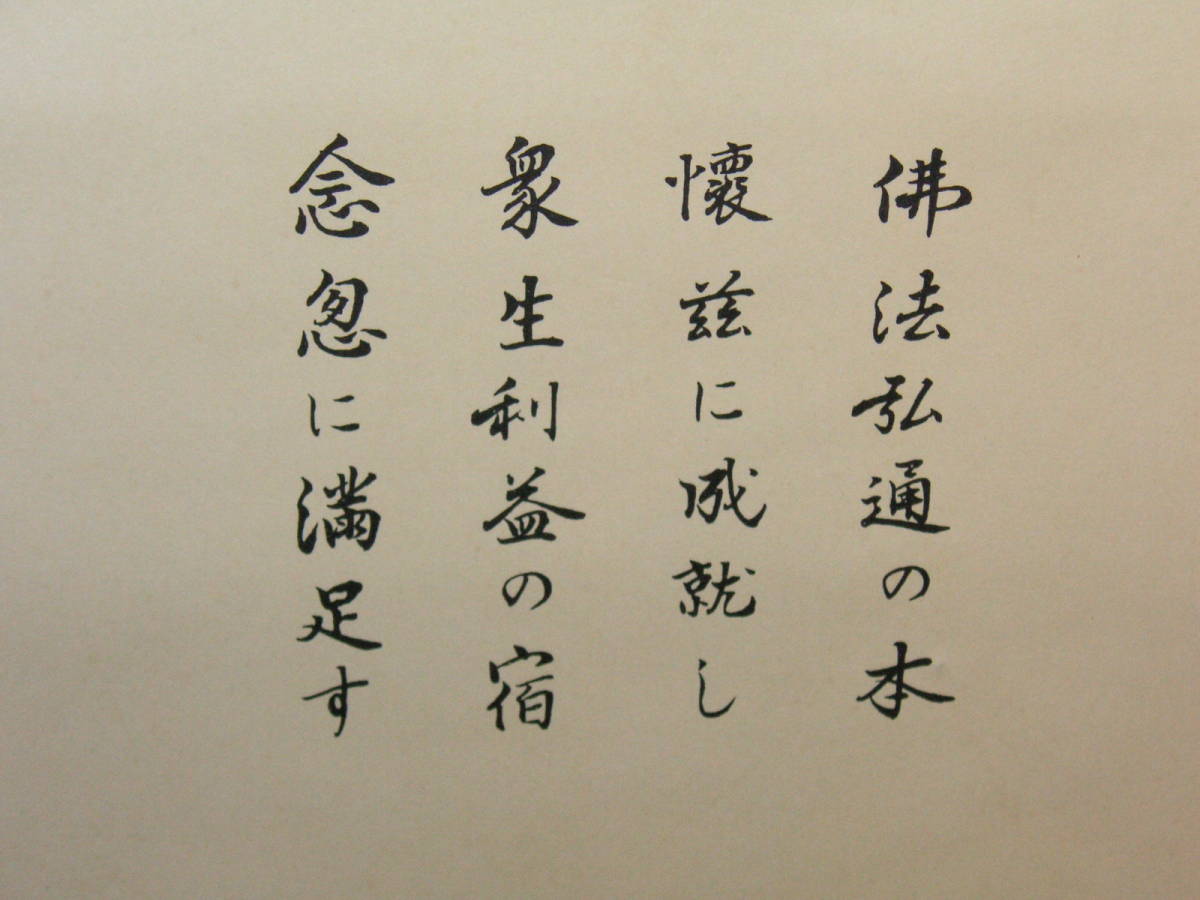 佛法弘通の本
懐茲に成就し
衆生利益の宿
念忽に満足す